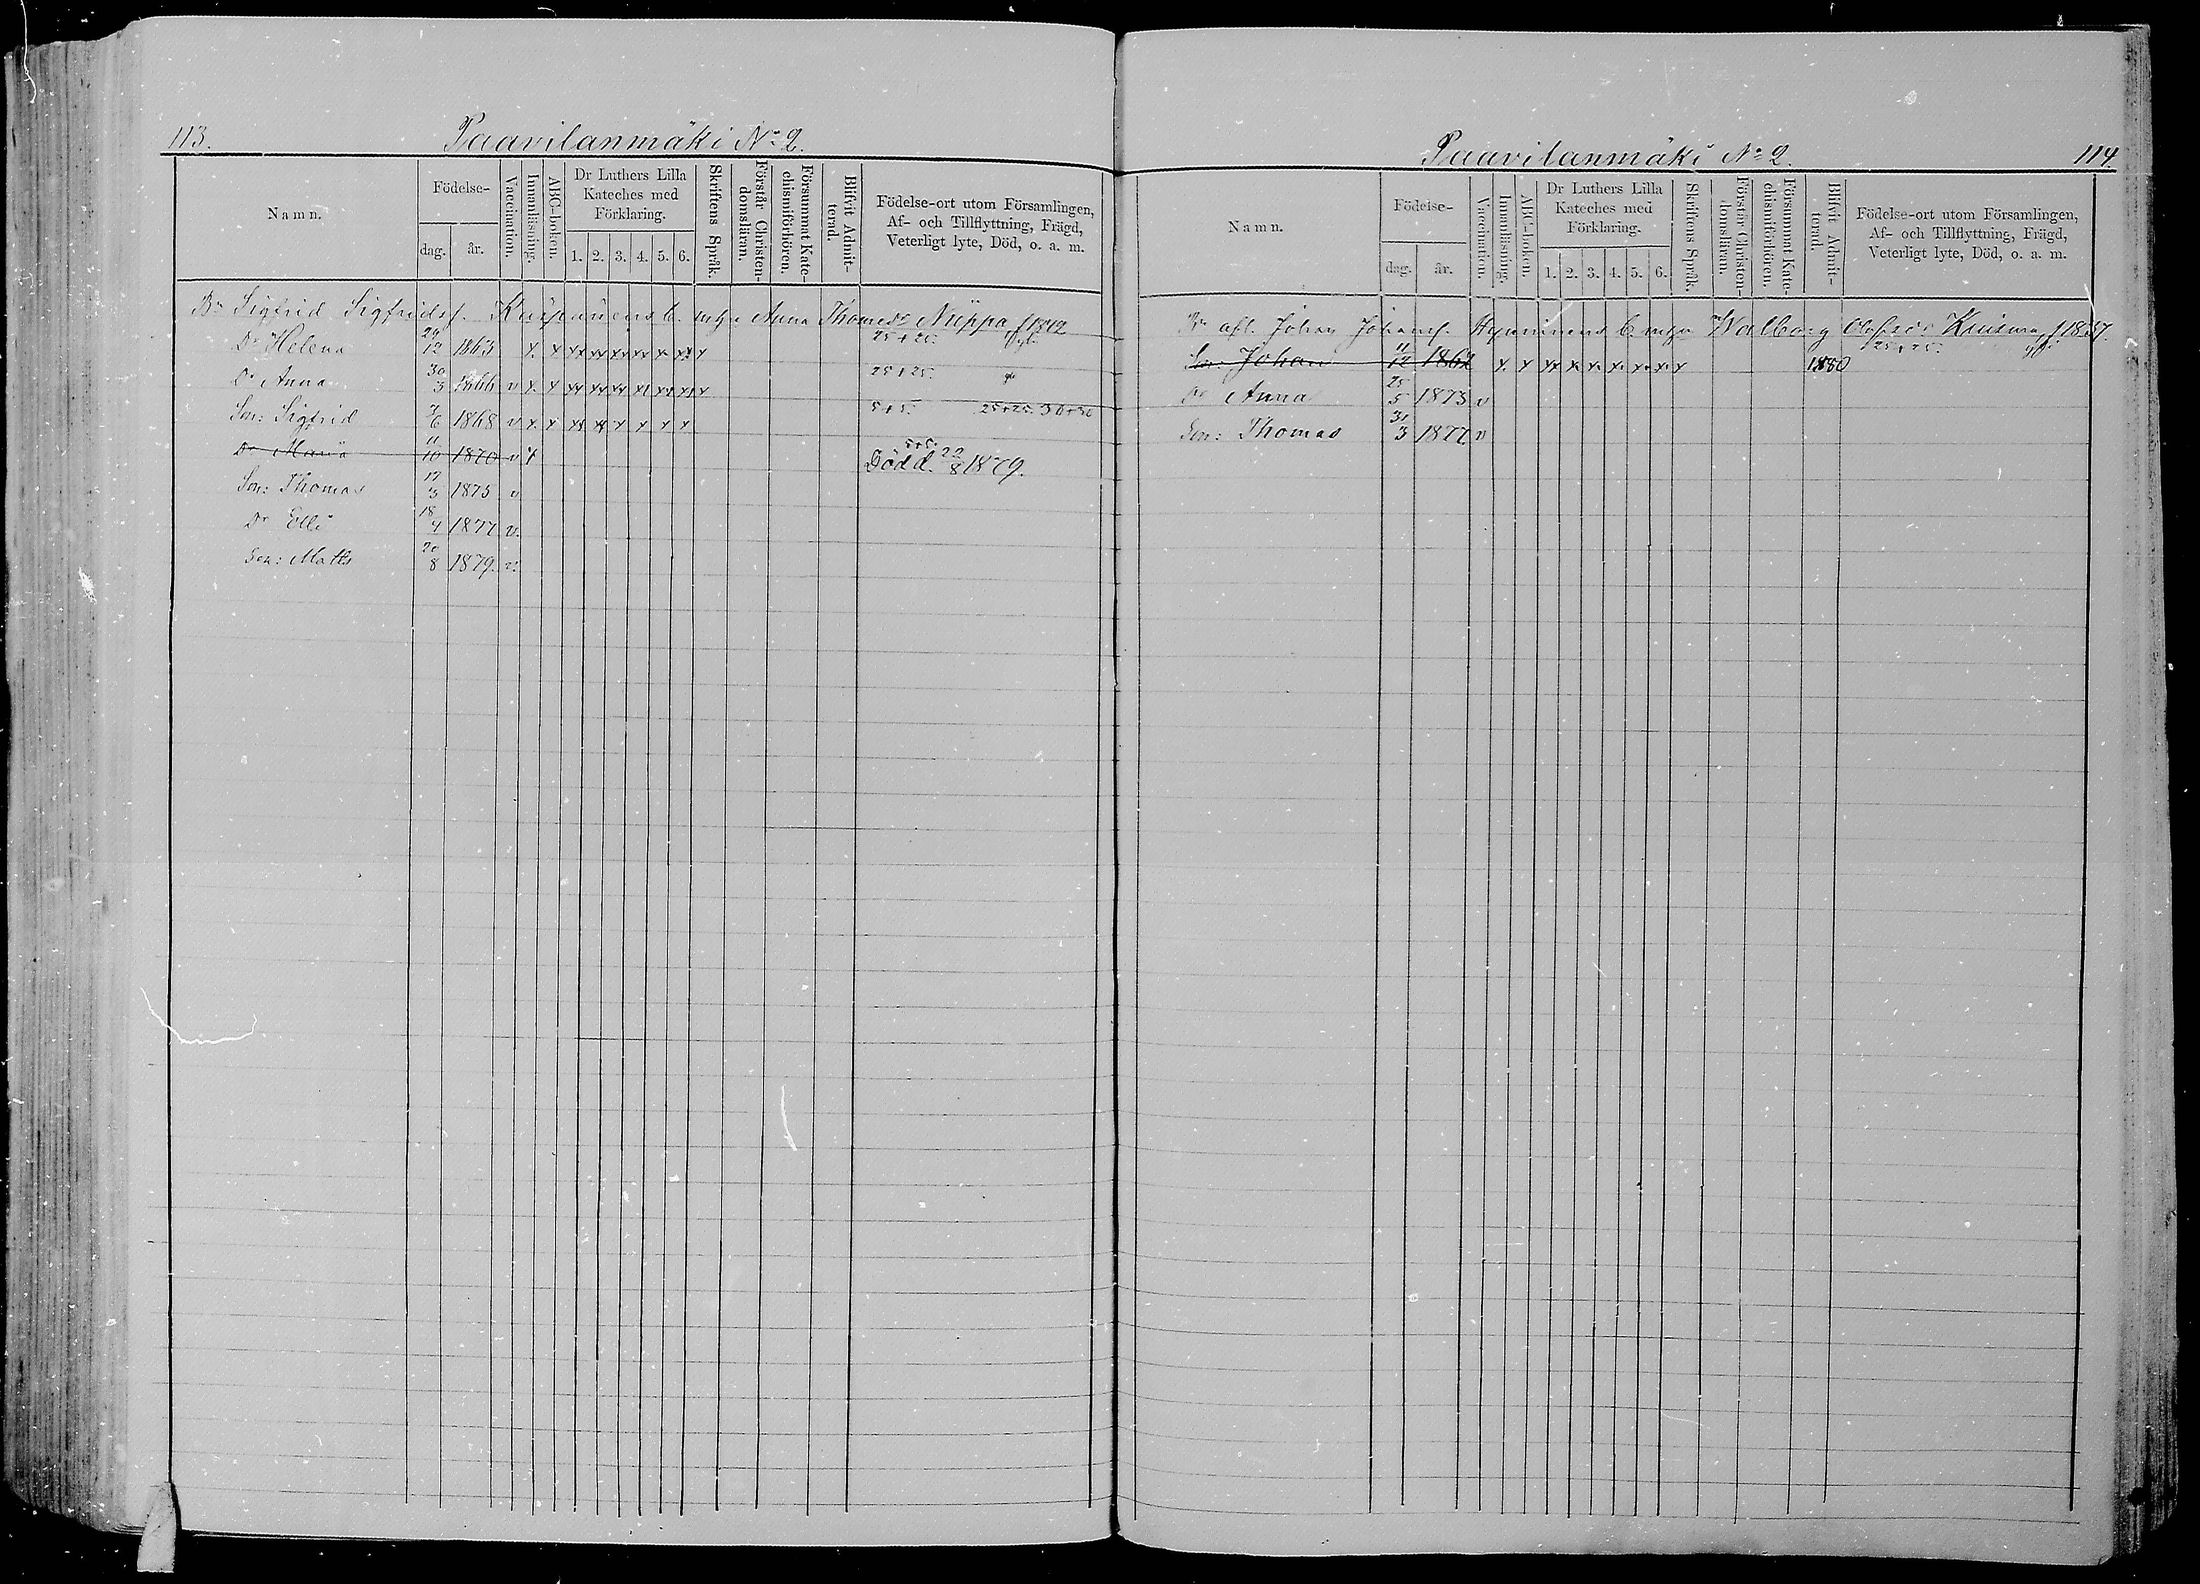 113.
Paavilanmäki No 2.
Namn.
Födelse-
dag.
år.
Vaccination.
Innanläsning.
ABC-boken.
Dr Luthers Lilla
Kateches med
Förklaring.
1. 2. 3. 4. 5. 6.
Skriftens Språk.
Förstår Christen-
domsläran.
Försummat Kate-
chismiförhören.
Blifvit Admit-
terad.
Födelse-ort utom Församlingen,
Af- och Tillflyttning, Frägd,
Veterligt lyte, Död, o. a. m.
Bn Sigfrid Sigfridsf. b. m. Anna Thomasdr Nuppa f 1842
Dr Helena 29/12 1863 x x xx xx xx xx x xx x 25+25.
Dr Anna 30/3 1866 v x x xx xx xx xx xx x 25+25.
Son: Sigfrid 7/6 1868 v x x xx xx x x x x 5+5. 25+25. 30+30
Dr Maria 11/10 1870 v x 5+5. Död d. 22/8 1879.
Son: Thomas 17/3 1875 v
Dr Elli 18/4 1877 v.
Son: Matts 20/8 1879. v.
Paavilanmäki No 2.
114.
Namn.
Födelse-
dag.
år.
Vaccination.
Innanläsning.
ABC-boken.
Dr Luthers Lilla
Kateches med
Förklaring.
1. 2. 3. 4. 5. 6.
Skriftens Språk.
Förstår Christen-
domsläran.
Försummat Kate-
chismiförhören.
Blifvit Admit-
terad.
Födelse-ort utom Församlingen,
Af- och Tillflyttning, Frägd,
Veterligt lyte, Död, o. a. m.
Bn afl. Johan Johansf. Hyvninens b. m. Walborg Olofsdr Kuisma f 1837.
Son: Johan 11/12 1862 x x xx x x x x x x 1880 25+25.
Dr Anna 25/5 1873 v
Son: Thomas 31/3 1877 v